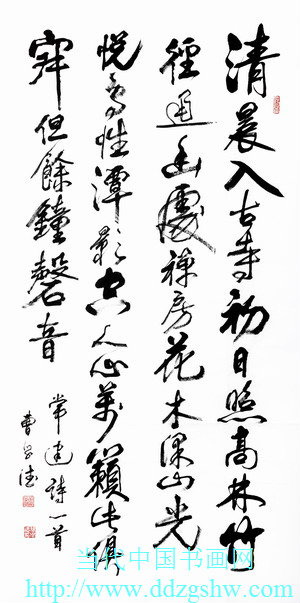 清晨入古寺初日照高林竹
徑通幽處禪房花木深山光
悦鳥性潭影空人心萬籟此俱
寂但餘鐘磬音
常建詩一首
曹德
当代中国书画网
http://www.ddzgshw.com